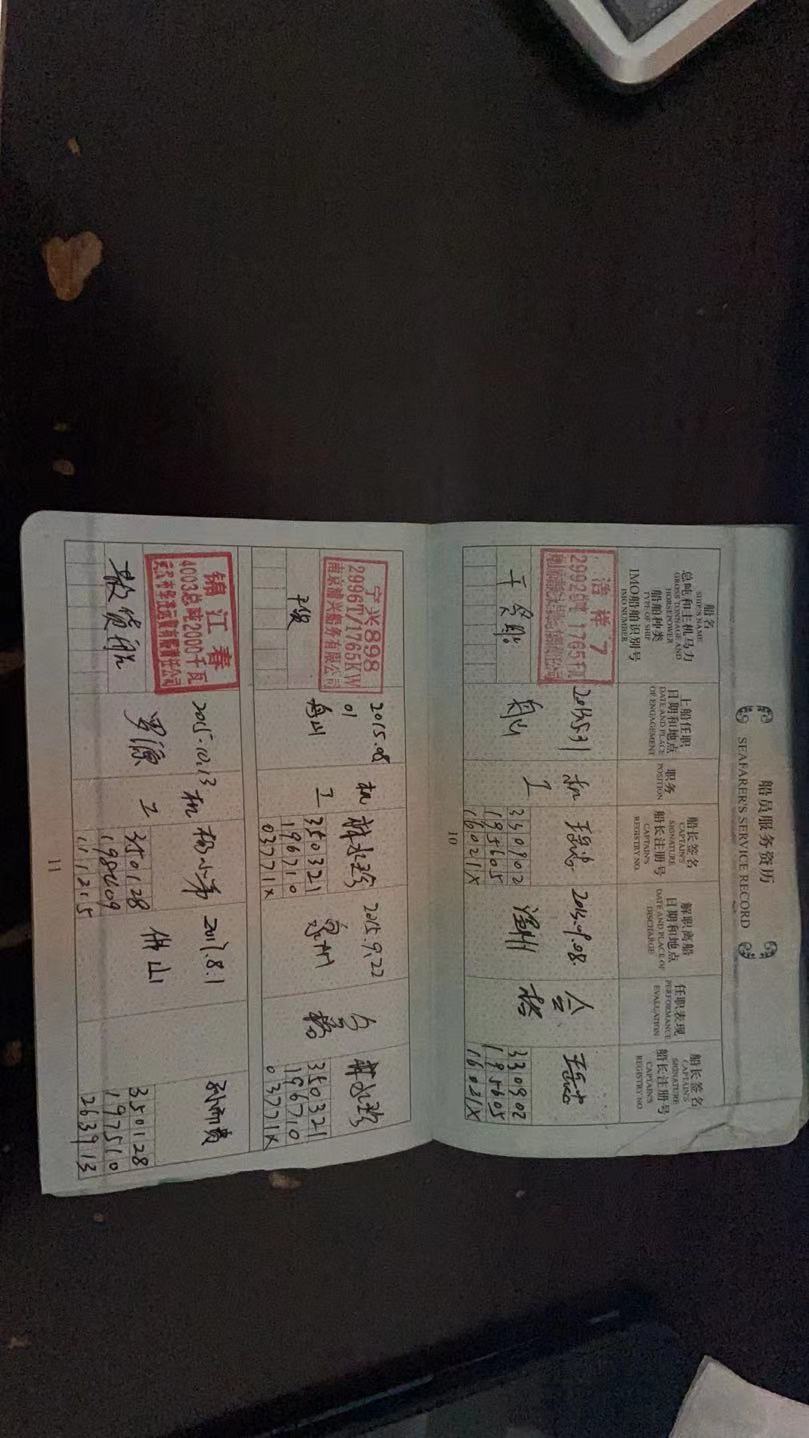 船员服务资历
SEAFARER'S SERVICE RECORD
船名
SHIP'S NAME
总吨和主机马力
GROSS TONNAGE AND
HORSEPOWER
船舶种类
TYPE OF SHIP
IMO船舶识别号
IMO NUMBER
上船任职
日期和地点
DATE AND PLACE
OF ENGAGEMENT
职务
POSITION
船长签名
CAPTAIN'S
SIGNATURE
船长注册号
CAPTAIN'S
REGISTRY NO.
解职离船
日期和地点
DATE AND PLACE OF
DISCHARGE
任职表现
PERFORMANCE
EVALUATION
船长签名
CAPTAIN'S
SIGNATURE
船长注册号
CAPTAIN'S
REGISTRY NO
浩祥7
2992吨 1765千瓦
干货船
舟山
机
工
330902
195605
16021X
合
格
330902
195605
16021X
10
宁兴898
2996T/1765KW
南京浦兴船务有限公司
2015.08
01
舟山
机
工
350321
196710
03771X
2015.9.22
合格
350321
196710
03771X
锦江春
4003总吨2000千瓦
散货船
2015.10.13
罗源
机
工
杨小弟
350128
2017.8.1
佛山
350128
197510
263913
11